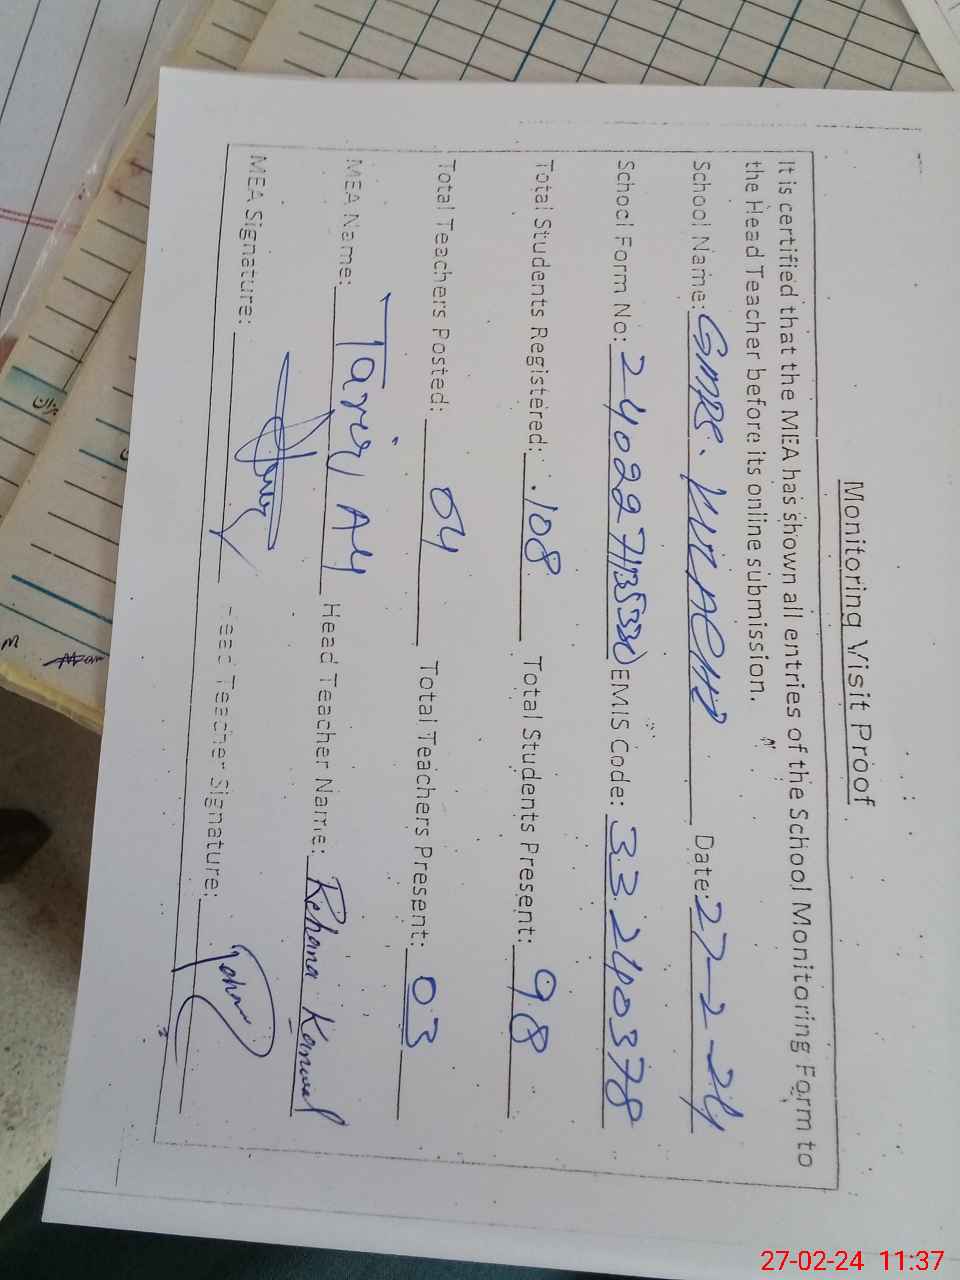 Monitoring Visit Proof
It is certified that the MEA has shown all entries of the School Monitoring Form to
the Head Teacher before its online submission.
School Name: GMPS. Date: 27-2-24
School Form No: EMIS Code: 33240378
Total Students Registered: 108 Total Students Present: 98
Total Teachers Posted: 04 Total Teachers Present: 03
MEA Name: Head Teacher Name: Rehana Kanwal
MEA Signature: Head Teacher Signature:
27-02-24 11:37